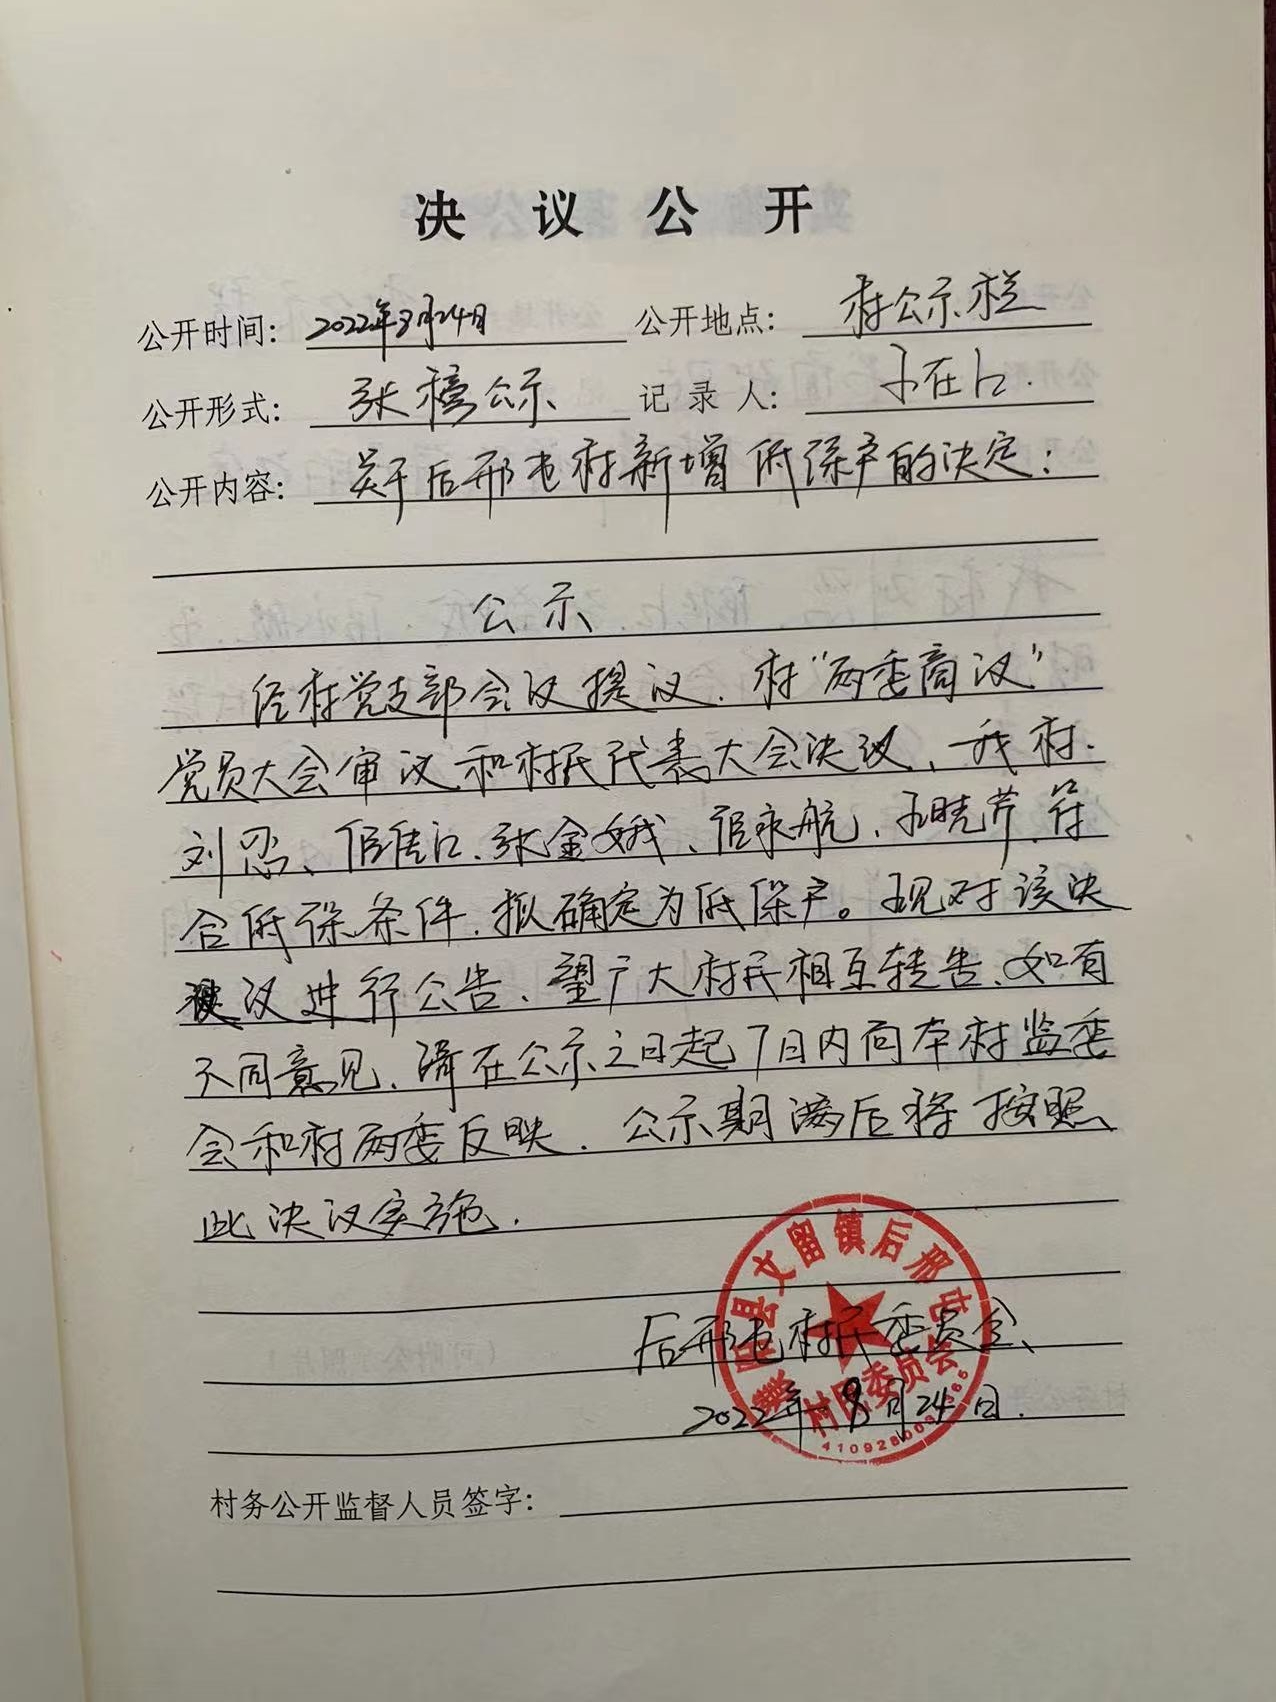 决议公开
公开时间: 2022年8月24日 公开地点: 村公示栏
公开形式: 张榜公示 记录人:
公开内容: 关于后邢屯村新增低保户的决定:
公示
经村党支部会议提议、村"两委商议"
党员大会审议和村民代表大会决议、我村.
刘忍、张金娥、王晓芹、符
合低保条件、拟确定为低保户。现对该决
议进行公告、望广大村民相互转告、如有
不同意见、请在公示之日起7日内向本村监委
会和村两委反映. 公示期满后将按照
此决议实施.
后邢屯村民委员会
2022年8月24日.
濮阳县文留镇后邢屯
村民委员会
村务公开监督人员签字: